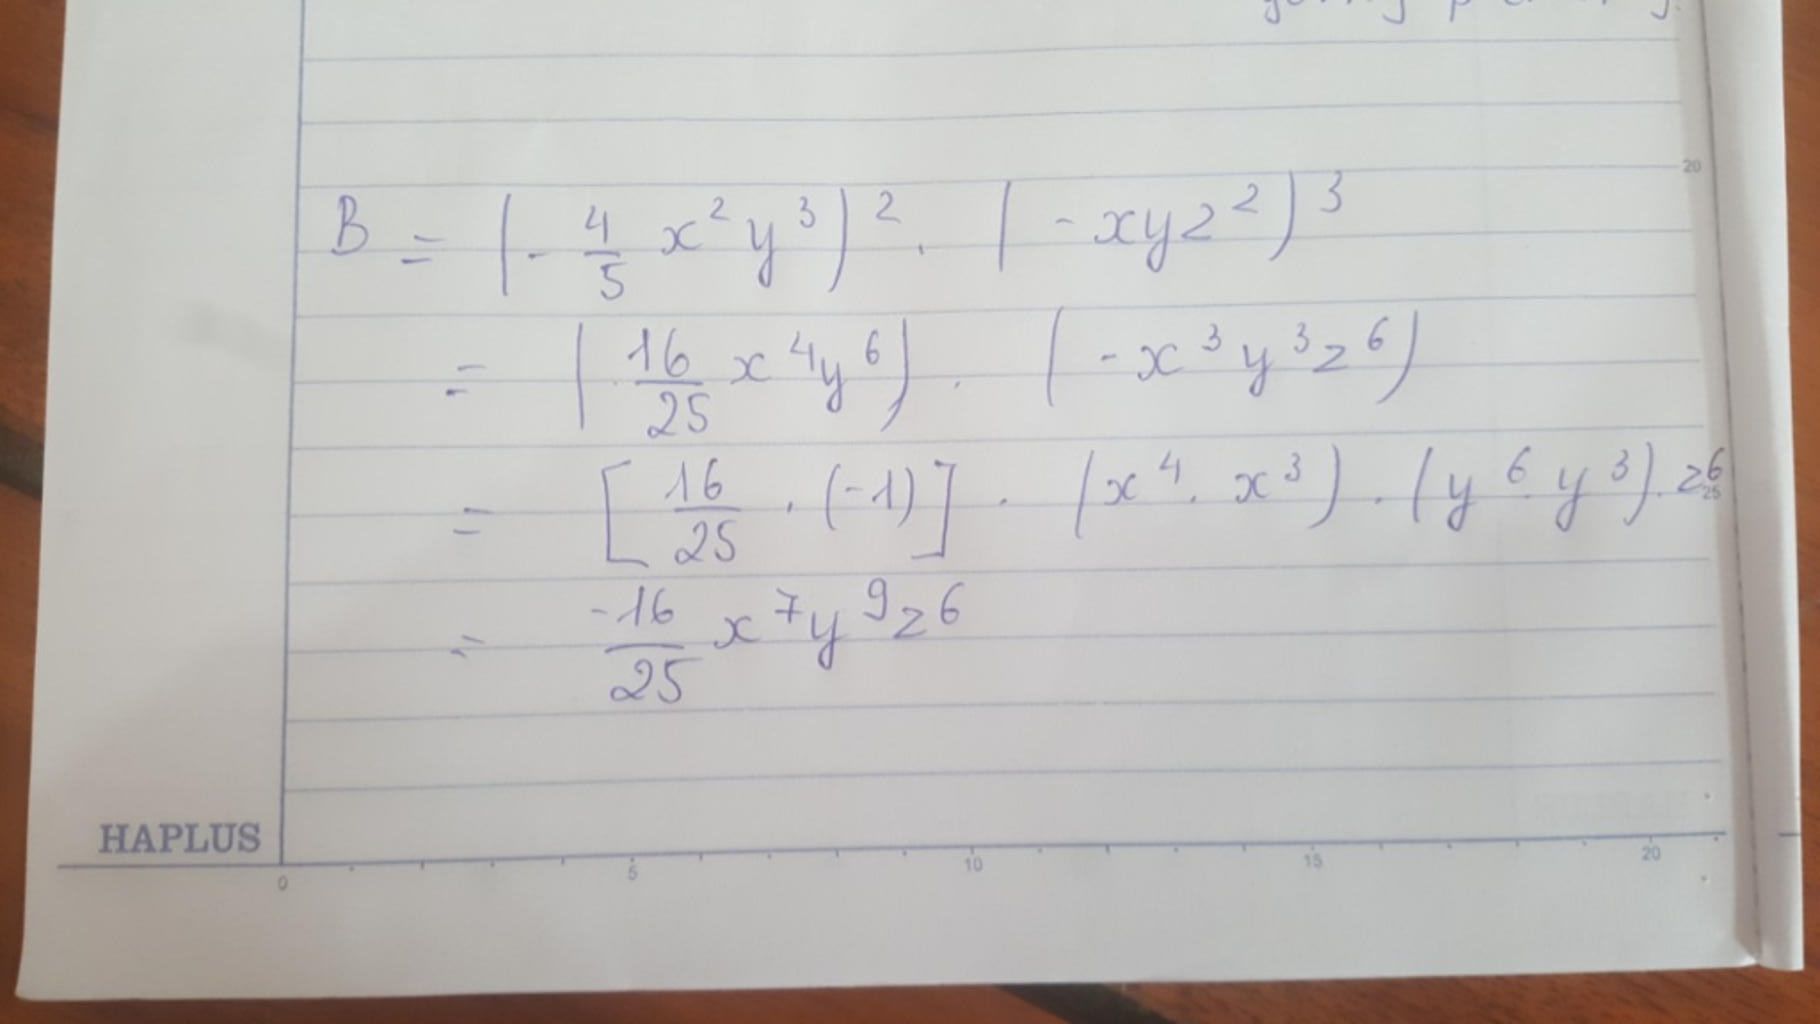 20
B = (- 4/5 x² y³)² . (- xyz²)³
= (16/25 x⁴y⁶) . (-x³y³z⁶)
= [16/25 . (-1)] . (x⁴. x³) . (y⁶. y³). z⁶
25
= -16/25 x⁷y⁹z⁶
HAPLUS
0 5 10 15 20